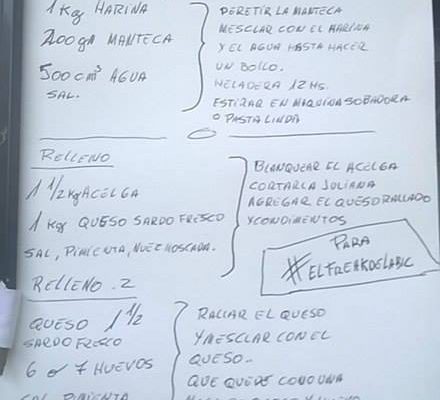 1 Kg HARINA
200 ga MANTECA
500 cm³ AGUA
SAL.
DERETIR LA MANTECA
MESCLAR CON EL HARINA
Y EL AGUA HASTA HACER
UN BOLLO.
HELADERA 12 HS.
ESTIRAR EN MAQUINA SOBADORA
O PASTA LINDA
RELLENO
1 1/2 Kg ACELGA
1 Kg QUESO SARDO FRESCO
SAL, PIMIENTA, NUEZ MOSCADA.
BLANQUEAR EL ACELGA
CORTARLA JULIANA
AGREGAR EL QUESO RALLADO
Y CONDIMENTOS
PARA
#ELFREAKDELABIC
RELLENO . 2
QUESO 1 1/2
SARDO FRESCO
6 o 7 HUEVOS
SAL PIMIENTA
RALLAR EL QUESO
Y MESCLAR CON EL
QUESO..
QUE QUEDE COMO UNA